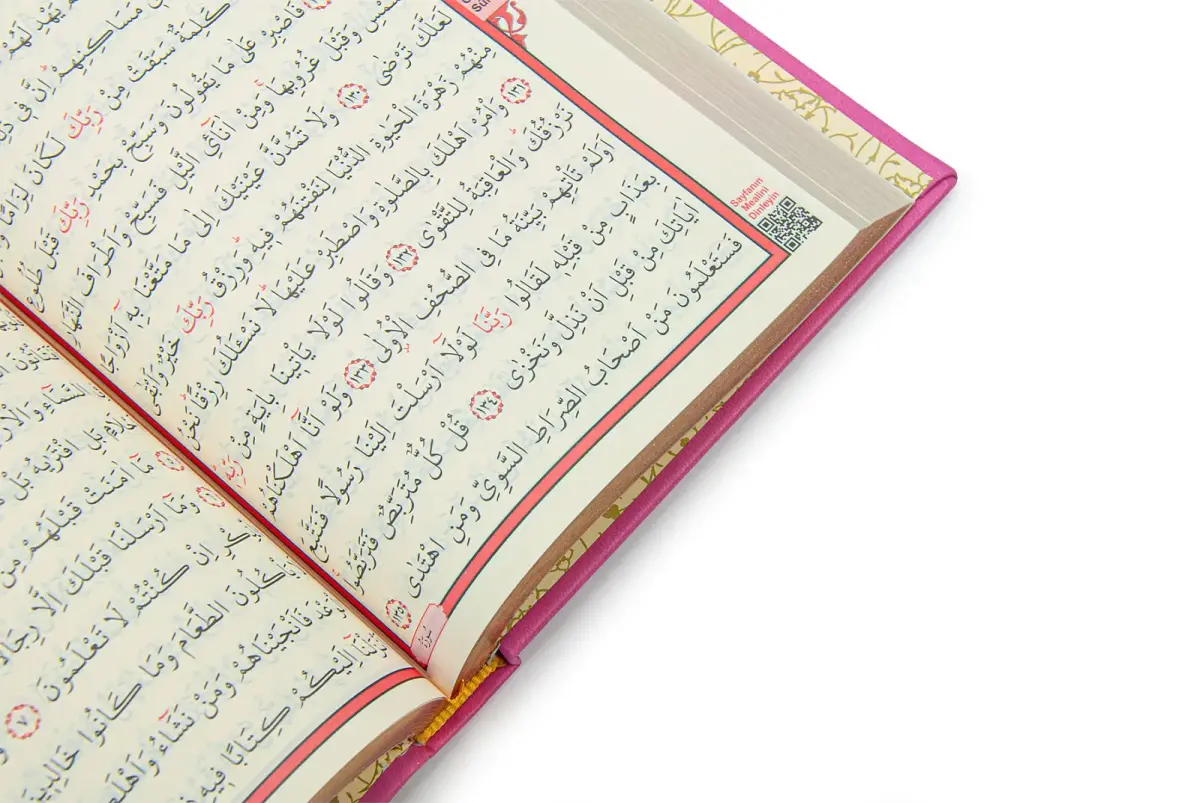 يَهْدِ لَهُمْ
مَسَاكِنِهِمْ اِنَّ فٖى
كَلِمَةٌ سَبَقَتْ مِنْ رَبِّكَ لَكَانَ لِزَامًا
فَاصْبِرْ عَلٰى مَا يَقُولُونَ وَسَبِّحْ بِحَمْدِ رَبِّكَ قَبْلَ طُلُوعِ
وَقَبْلَ غُرُوبِهَا وَمِنْ اٰنَٓائِ الَّيْلِ فَسَبِّحْ وَاَطْرَافَ النَّهَارِ
لَعَلَّكَ تَرْضٰى ﴿١٣٠﴾ وَلَا تَمُدَّنَّ عَيْنَيْكَ اِلٰى مَا مَتَّعْنَا بِهٖٓ اَزْوَاجًا
مِنْهُمْ زَهْرَةَ الْحَيٰوةِ الدُّنْيَا لِنَفْتِنَهُمْ فٖيهِ وَرِزْقُ رَبِّكَ خَيْرٌ وَاَبْقٰى
﴿١٣١﴾ وَأْمُرْ اَهْلَكَ بِالصَّلٰوةِ وَاصْطَبِرْ عَلَيْهَا لَا نَسْـَٔلُكَ رِزْقًا نَحْنُ
نَرْزُقُكَ وَالْعَاقِبَةُ لِلتَّقْوٰى ﴿١٣٢﴾ وَقَالُوا لَوْلَا يَأْتٖينَا بِاٰيَةٍ مِنْ رَبِّهٖ
اَوَلَمْ تَأْتِهِمْ بَيِّنَةُ مَا فِى الصُّحُفِ الْاُولٰى ﴿١٣٣﴾ وَلَوْ اَنَّٓا اَهْلَكْنَاهُمْ
بِعَذَابٍ مِنْ قَبْلِهٖ لَقَالُوا رَبَّنَا لَوْلَٓا اَرْسَلْتَ اِلَيْنَا رَسُولًا فَنَتَّبِعَ
اٰيَاتِكَ مِنْ قَبْلِ اَنْ نَذِلَّ وَنَخْزٰى ﴿١٣٤﴾ قُلْ كُلٌّ مُتَرَبِّصٌ فَتَرَبَّصُوا
فَسَتَعْلَمُونَ مَنْ اَصْحَابُ الصِّرَاطِ السَّوِىِّ وَمَنِ اهْتَدٰى ﴿١٣٥﴾
Sayfanın
Mealini
Dinleyin
بَلِ افْتَرٰيهُ بَلْ
مَٓا اٰمَنَتْ قَبْلَهُمْ مِنْ
وَمَٓا اَرْسَلْنَا قَبْلَكَ اِلَّا رِجَالًا
اِنْ كُنْتُمْ لَا تَعْلَمُونَ ﴿٧﴾
الطَّعَامَ وَمَا كَانُوا خَالِدٖينَ
فَاَنْجَيْنَاهُمْ وَمَنْ نَشَٓاءُ وَاَهْلَكْنَا
اِلَيْكُمْ كِتَابًا فٖيهِ